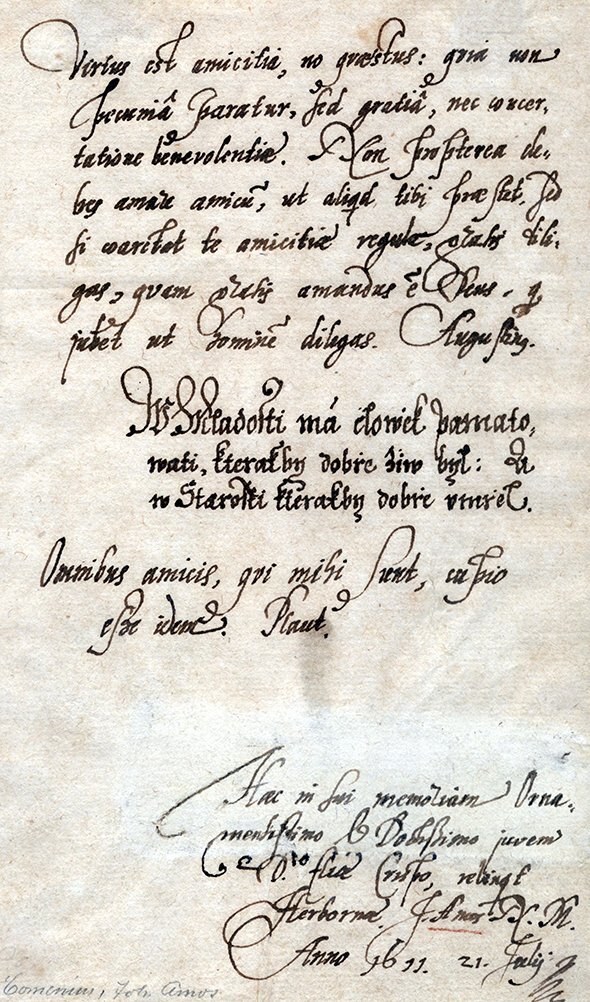 Virtus est amicitia, nō quæstus: quia non
pecuniâ paratur, sed gratiâ, nec concer-
tatione benevolentiæ. Non propterea de-
bes amare amicū, ut aliqd tibj præstet, sed
si
gas, quam amandus ē Deus, q
jubet ut hominē diligas. Augustinꝰ.
W Mladosti má člowěk pamato,
wati, kterakby dobře žiw byl: A
w Starosti kterakby dobře vmřel.
Omnibus amicis, qvi mihi sunt, cupio
esse idem. Plaut.
Hæc in sui memoriam Orna-
mentissimo & Doctissimo juvem
D.no Crispo, relinqt
Herbornæ J. Amos N. M.
Anno 1611. 21. Julij
Comenius, Joh. Amos